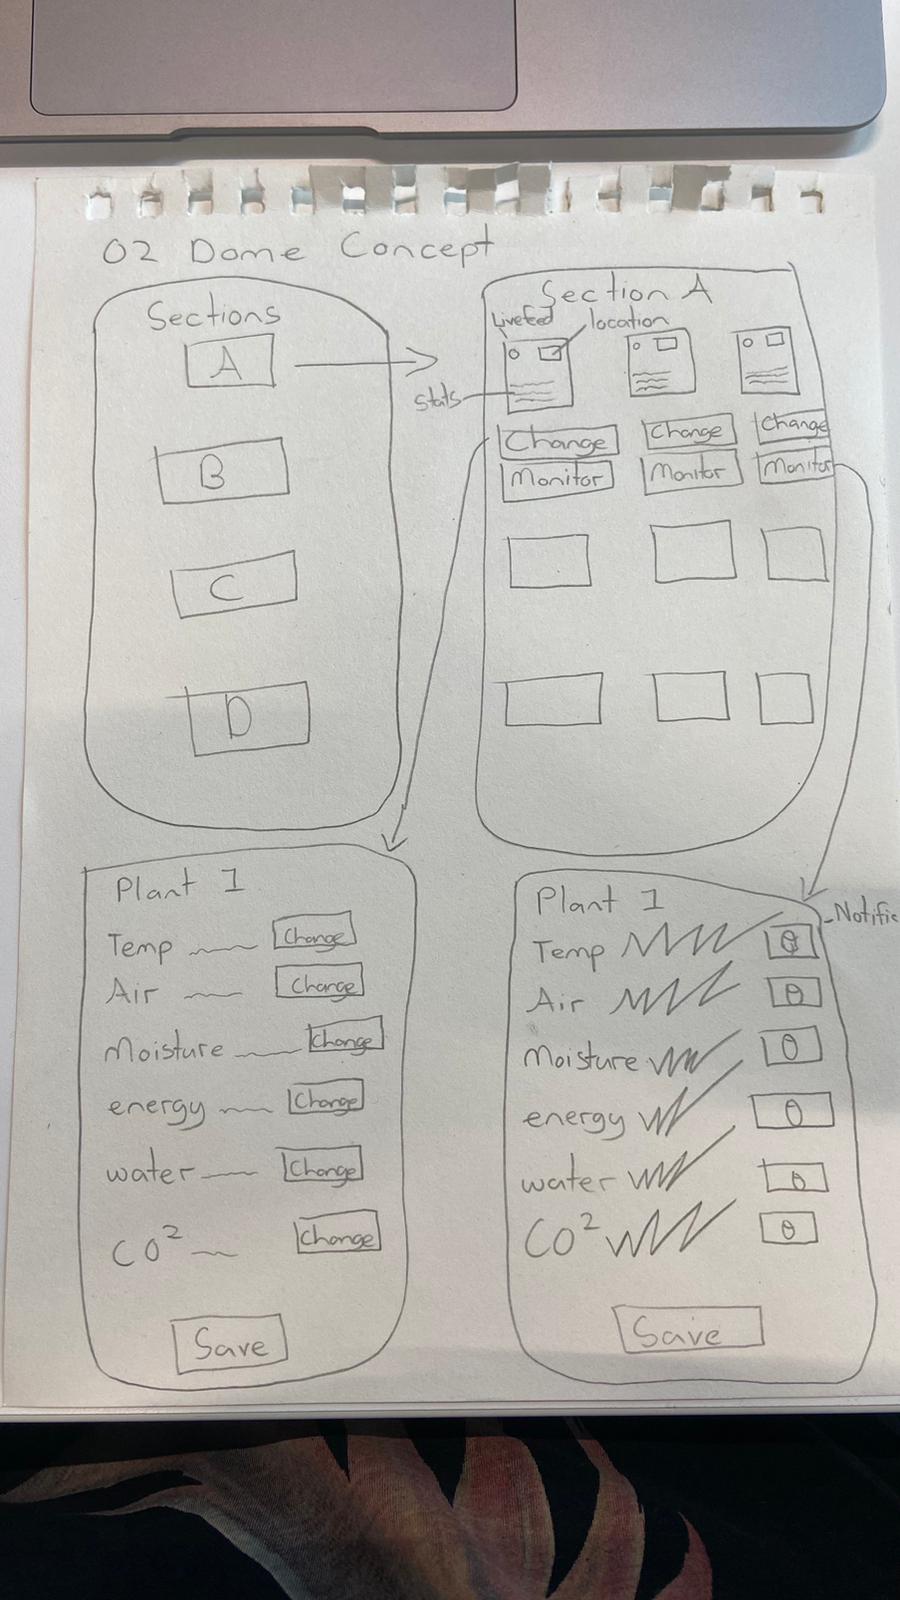 O2 Dome Concept
Sections
A
B
C
D
Section A
Livefeed
location
Stats
Change Change Change
Monitor Monitor Monitor
Plant 1
Temp Change
Air Change
Moisture Change
energy Change
water Change
CO²  Change
Save
Plant 1
Notific
Temp
Air
Moisture
energy
water
CO²
Save